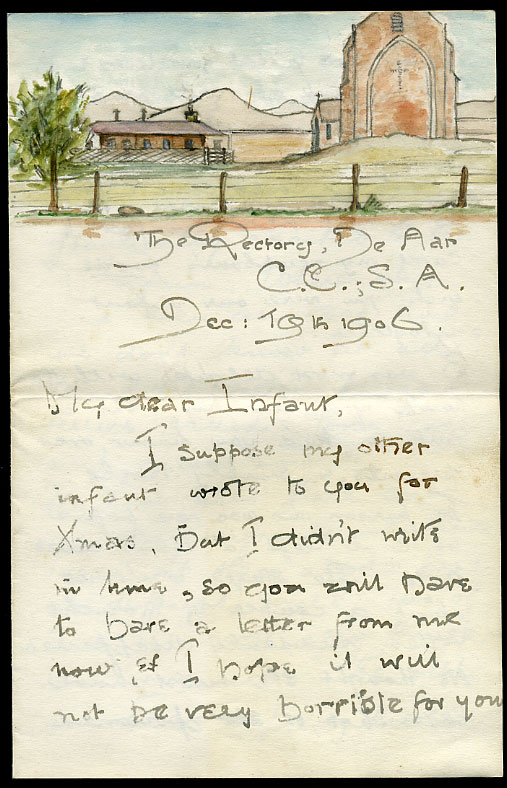 The Rectory, De Aar
C.C.; S. A.
Dec: 19th 1906.
My dear Infant,
I suppose my other
infant wrote to you for
Xmas, but I didn't write
in time, so you will have
to have a letter from me
now, & I hope it will
not be very horrible for you